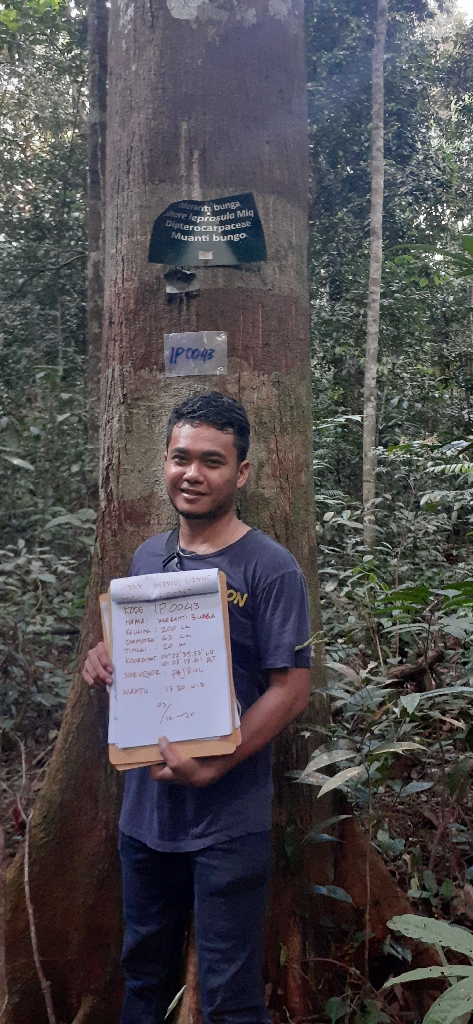 Meranti bunga
Shore leprosula Miq
Dipterocarpaceae
Muanti bungo.
IP0043
KODE : IP0043
NAMA : MERANTI BUNGA
KELILING : 200 CM
DIAMETER : 63 CM
TINGGI : 20 M
KOORDINAT
SURVEYOR : PASRUL
WAKTU : 17.20 WIB
ON